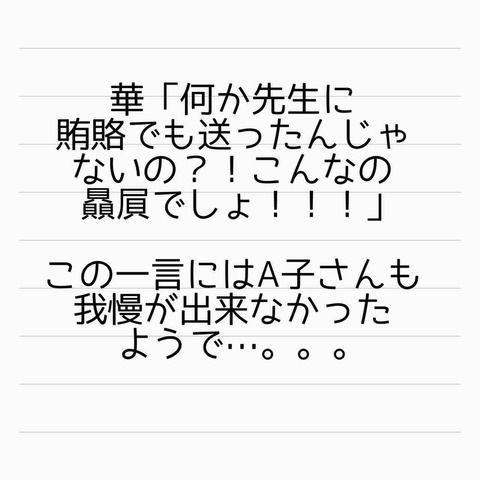 華「何か先生に
賄賂でも送ったんじゃ
ないの？！こんなの
贔屓でしょ！！！」
この一言にはA子さんも
我慢が出来なかった
ようで…。。。